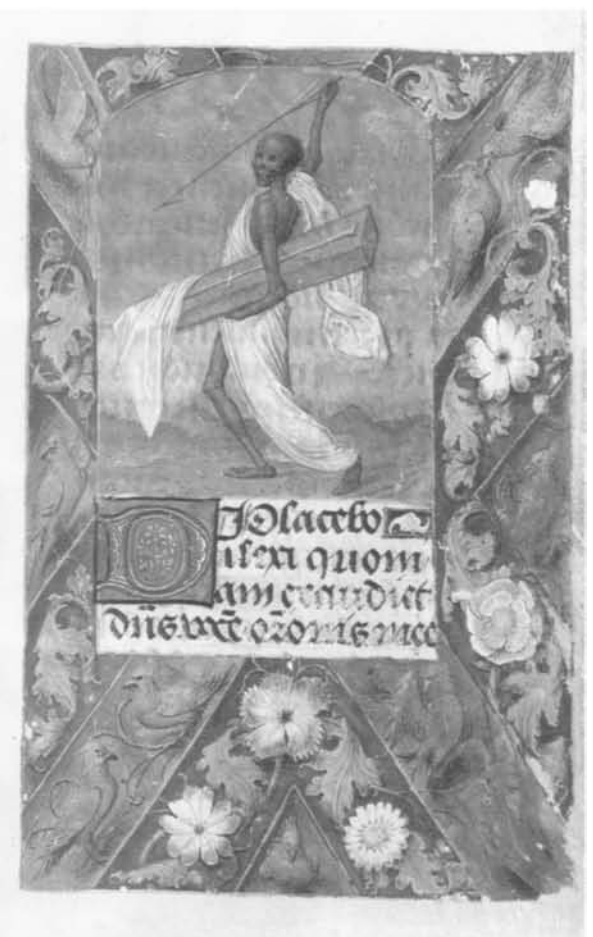 Placebo
Dilexi quoni
am exaudiet
dn̄s vocē or̄onis mee